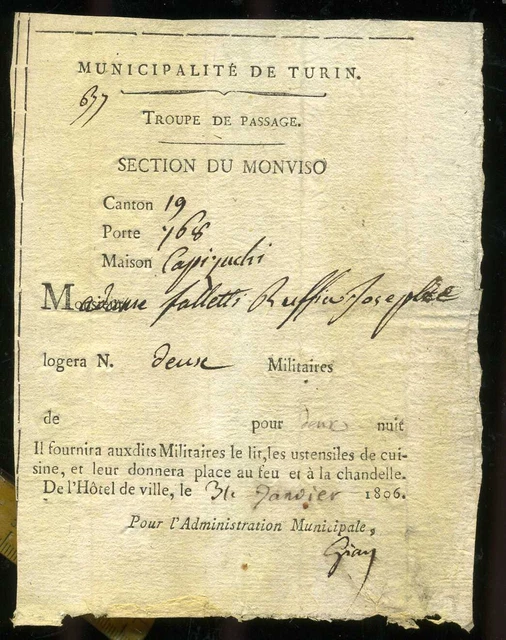 MUNICIPALITÉ DE TURIN.
637
TROUPE DE PASSAGE.
SECTION DU MONVISO
Canton 19
Porte 768
Maison
Madame falletti Ruffin Josephe
logera N. deux Militaires
de pour deux nuit
Il fournira auxdits Militaires le lit, les ustensiles de cui-
sine, et leur donnera place au feu et à la chandelle.
De l'Hôtel de ville, le 31. Janvier 1806.
Pour l'Administration Municipale,